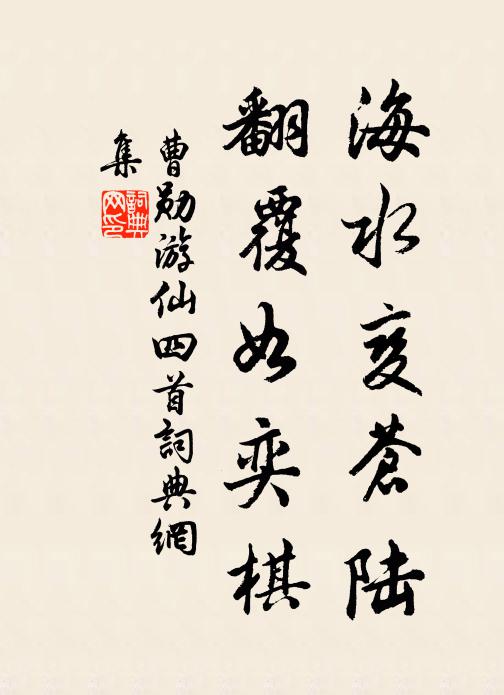 海水变苍陆
翻覆如奕棋
曹勋游仙四首词典網
集
詞典
网印